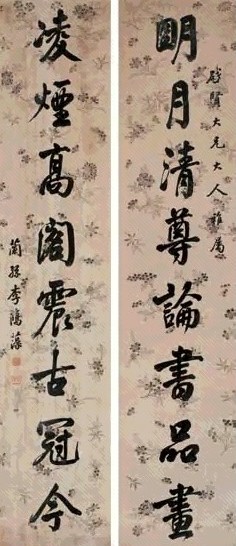 賢大兄大人雅屬
明月清尊論書品畫
凌煙高閣震古冠今
蘭孫李鴻藻